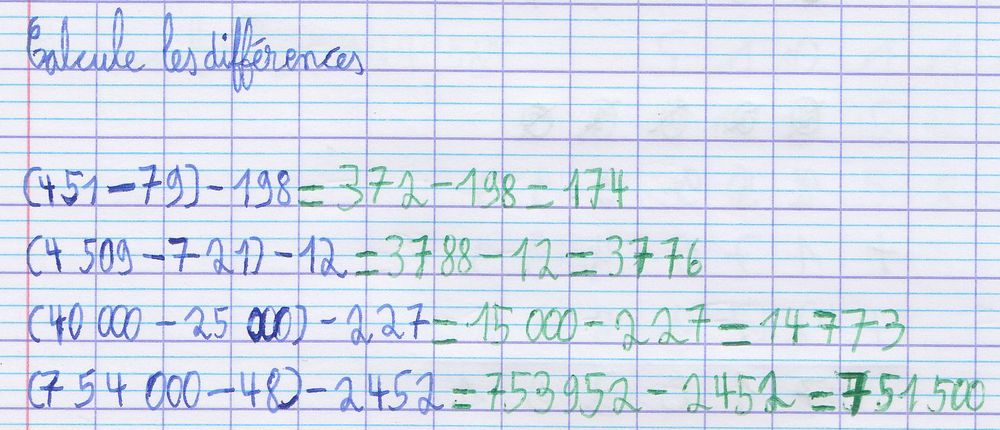 Calcule les différences
(451-79)-198=372-198=174
(4 509-721)-12=3788-12=3776
(40 000-25 000)-227=15 000-227=14773
(754 000-48)-2452=753952-2452=751500